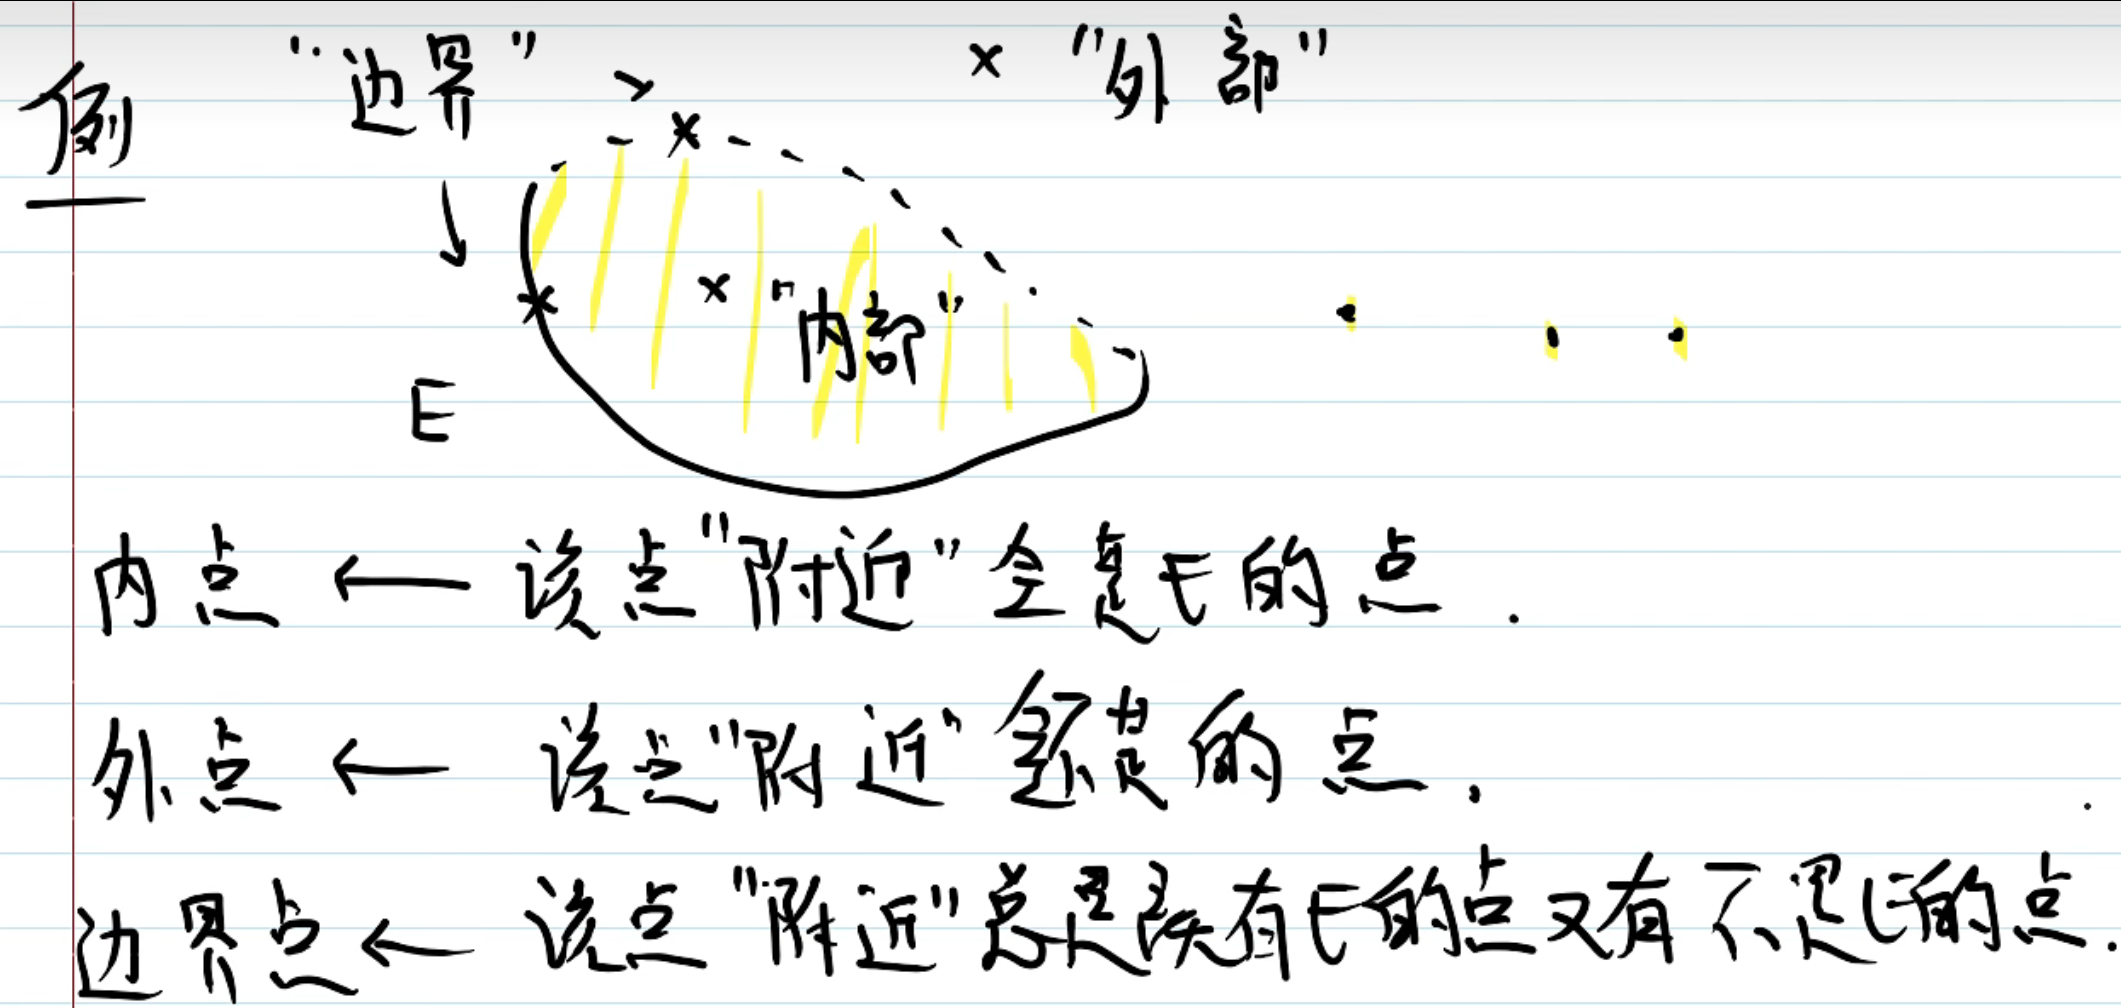 例 "边界" × "外部"
× "内部"
E
内点 ← 该点"附近"全是E的点.
外点 ← 该点"附近"都是的点.
边界点 ← 该点"附近"总是既有E的点又有不是E的点.